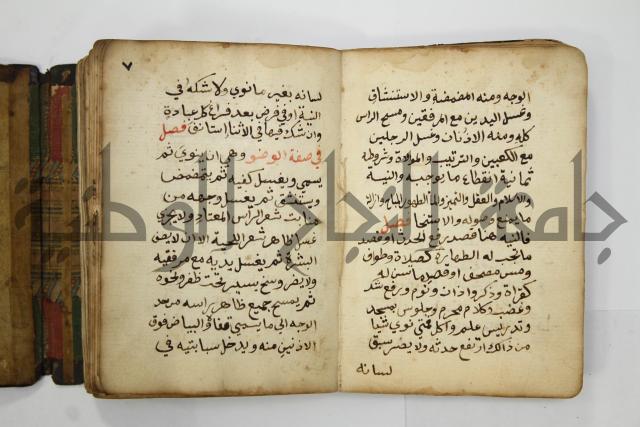 الوجه ومنه المضمضة والاستنشاق
وغسل اليدين مع المرفقين ومسح الراس
كله ومنه الاذنان وغسل الرجلين
مع الكعبين والترتيب والموالاة وشروطه
ثمانية انقطاع ما يوجبه والنية
والاسلام والعقل والتمييز والماء الطهور المباح وازالة
ما يمنع وصوله والاستنجا فصل
فالنية هنا قصد رفع الحدث او قصد
ما تجب له الطهارة كصلاة وطواف
ومس مصحف او قصد ما تسن له
كقراة وذكر واذان ونوم ورفع شك
وغضب وكلام محرم وجلوس بمسجد
وتدريس علم واكل فمتى نوى شيا
من ذالك ارتفع حدثه ولا يضر سبق
لسانه
٧
لسانه بغير ما نوى ولا شكه في
النية او في فرض بعد فراغ كل عبادة
وان شك فيها في الاثنا استانف فصل
في صفة الوضو وهي ان ينوي ثم
يسمي ويغسل كفيه ثم يتمضمض
ويستنشق ثم يغسل وجهه من
منابت شعر الراس المعتاد ولا يجزي
غسل ظاهر شعر اللحية الا ان لا يصف
البشرة ثم يغسل يديه مع مرفقيه
ولا يضر وسخ يسير تحت ظفر ونحوه
ثم يمسح جميع ظاهر راسه من حد
الوجه الى ما يسمى قفا والبياض فوق
الاذنين منه ويدخل سبابتيه في
جامعة النجاح الوطنية